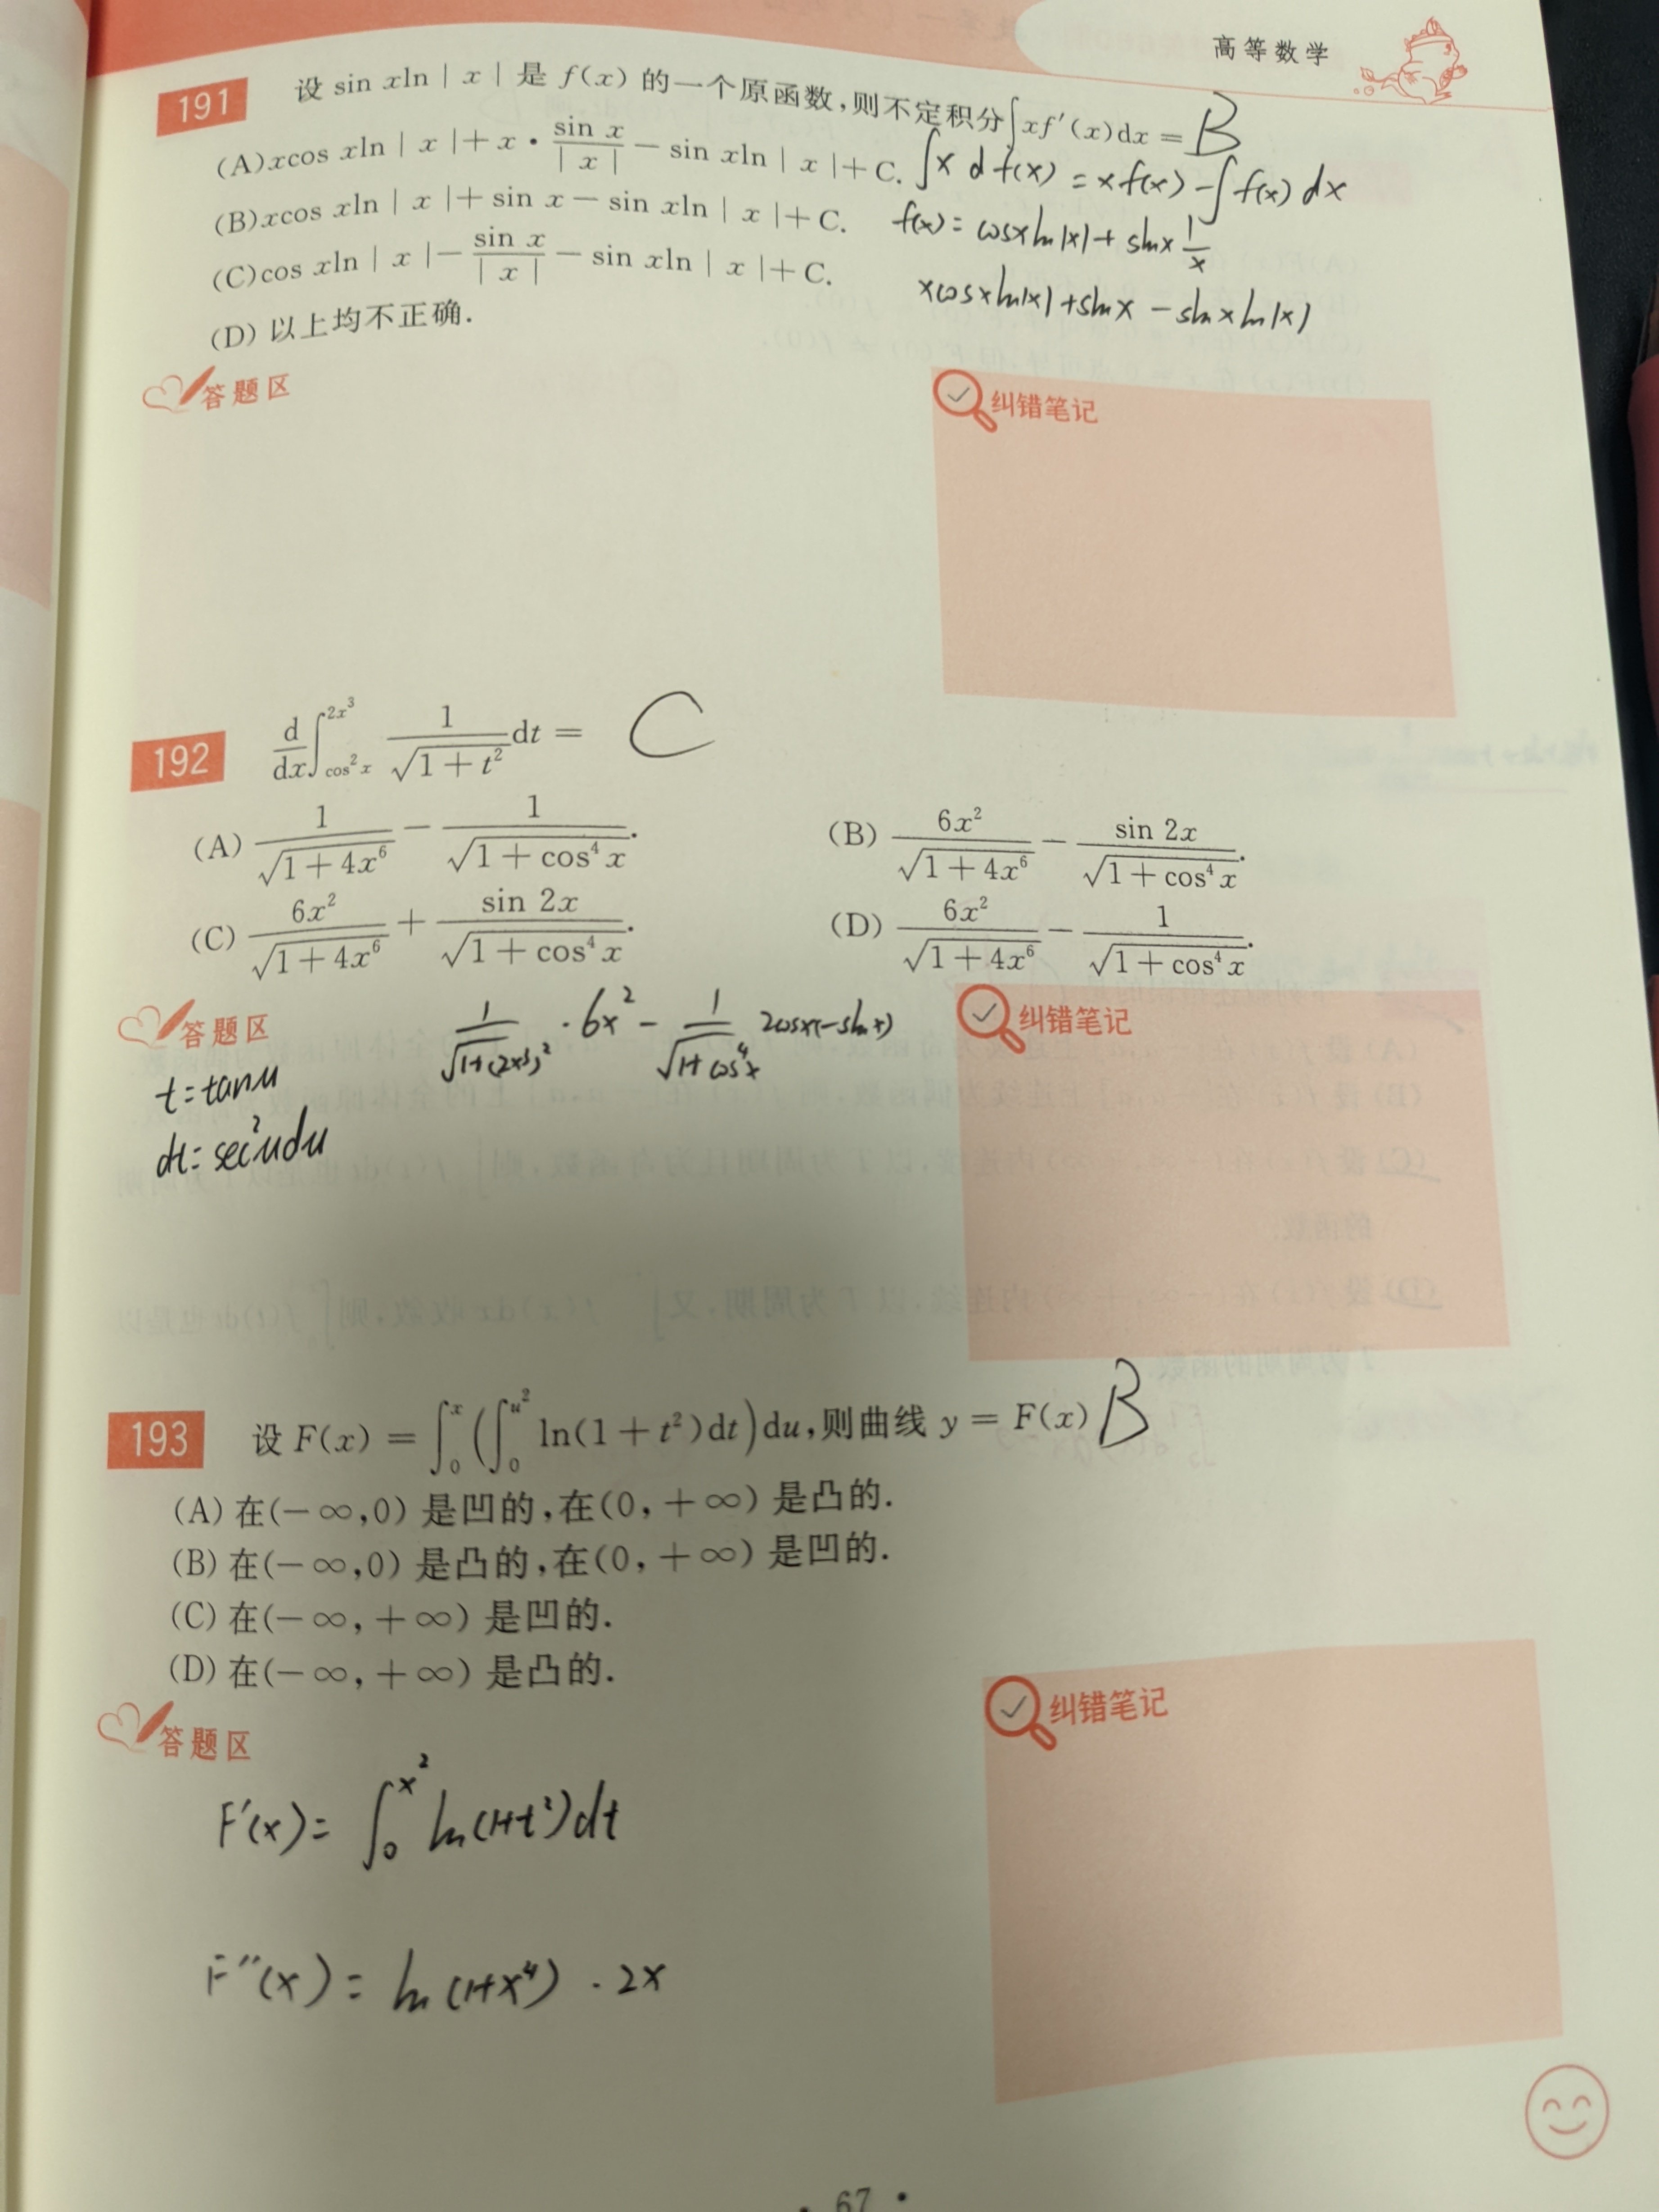 高等数学
191 设 sin xln | x | 是 f(x) 的一个原函数,则不定积分∫xf′(x)dx = B
(A)xcos xln | x |+ x · sin x/| x | − sin xln | x |+ C.
∫x d f(x) = xf(x) − ∫f(x) dx
(B)xcos xln | x |+ sin x − sin xln | x |+ C.
f(x) = cosx ln|x| + sinx 1/x
(C)cos xln | x |− sin x/| x | − sin xln | x |+ C.
xcosx ln|x| + sinx − sinx ln|x|
(D) 以上均不正确.
答题区
纠错笔记
192 d/dx ∫_{cos²x}^{2x³} 1/√(1 + t²) dt = C
(A) 1/√(1 + 4x⁶) − 1/√(1 + cos⁴x).
(B) 6x²/√(1 + 4x⁶) − sin 2x/√(1 + cos⁴x).
(C) 6x²/√(1 + 4x⁶) + sin 2x/√(1 + cos⁴x).
(D) 6x²/√(1 + 4x⁶) − 1/√(1 + cos⁴x).
答题区
1/√(1+(2x³)²) · 6x² − 1/√(1+cos⁴x) 2cosx(−sinx)
纠错笔记
t = tanu
dt = sec²u du
193 设 F(x) = ∫₀ˣ (∫₀^{u²} ln(1 + t²)dt)du,则曲线 y = F(x) B
(A) 在(− ∞,0) 是凹的,在(0, + ∞) 是凸的.
(B) 在(− ∞,0) 是凸的,在(0, + ∞) 是凹的.
(C) 在(− ∞, + ∞) 是凹的.
(D) 在(− ∞, + ∞) 是凸的.
答题区
纠错笔记
F′(x) = ∫₀^{x²} ln(1+t²)dt
F″(x) = ln(1+x⁴) · 2x
· 67 ·